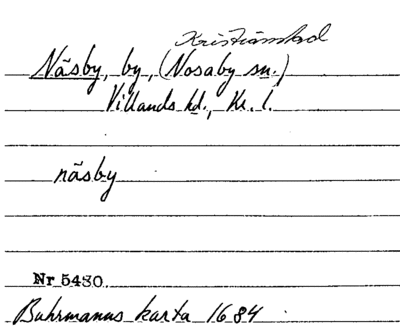 Kristianstad
Näsby, by, (Nosaby sn.)
Villands hd., Kr. l.
näsby
Nr 5480.
Buhrmanns karta 1684